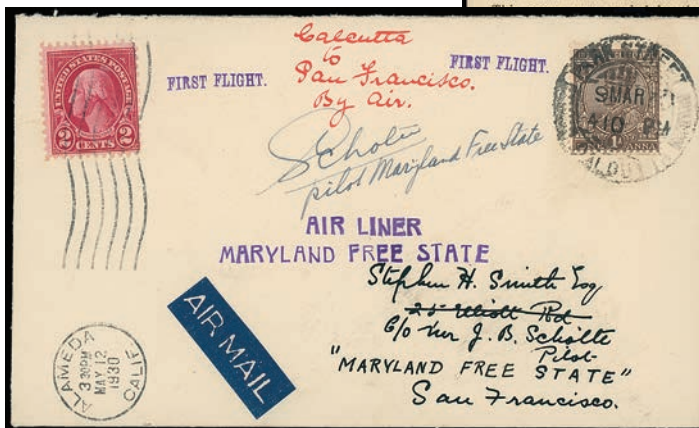 UNITED STATES POSTAGE
2 CENTS 2
FIRST FLIGHT.
Calcutta
to
San Francisco.
By Air.
FIRST FLIGHT.
PARK STREET
9 MAR
4 10 PM
ANNA
Scholte
pilot Maryland Free State
AIR LINER
MARYLAND FREE STATE
Stephen H. Smith Esq
25 Elliott Rd
C/o Mr J. B. Scholte
Pilot
"MARYLAND FREE STATE"
San Francisco.
AIR MAIL
ALAMEDA
3 30PM
MAY 12
1930
CALIF.